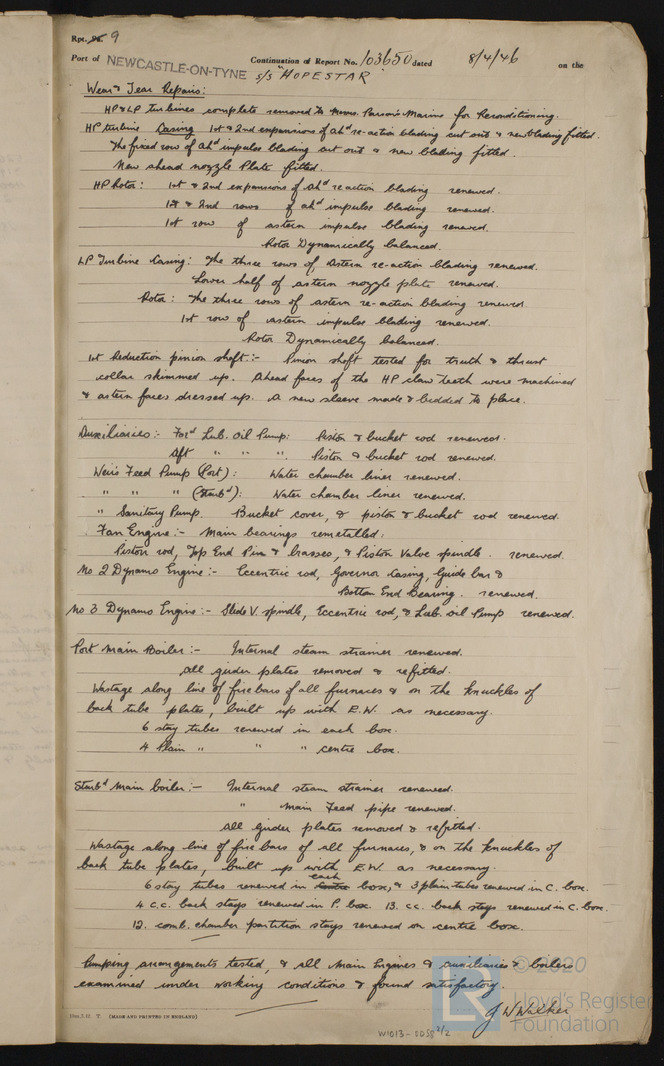 Rpt. 9a. 9
Port of NEWCASTLE-ON-TYNE Continuation of Report No. 103650 dated 8/4/46 on the
s/s "HOPESTAR"
Wear & Tear Repairs:
HP & LP turbines complete removed to Messrs. Parson's Marine for Reconditioning.
HP turbine Casing 1st & 2nd expansions of ahd re-action blading cut out & new blading fitted.
The fixed row of ahd impulse blading cut out & new blading fitted.
New ahead nozzle Plate fitted.
HP Rotor: 1st & 2nd expansions of ahd re action blading renewed.
1st & 2nd rows of ahd impulse blading renewed.
1st row of astern impulse blading renewed.
Rotor Dynamically balanced.
LP Turbine Casing: The three rows of Astern re-action blading renewed.
Lower half of astern nozzle plate renewed.
Rotor: The three rows of astern re-action blading renewed
1st row of astern impulse blading renewed.
Rotor Dynamically balanced.
1st Reduction pinion shaft:- Pinion shaft tested for truth & thrust
collar skimmed up. Ahead faces of the HP claw teeth were machined
& astern faces dressed up. A new sleeve made & bedded to place.
Auxiliaries:- Forwd Lub. Oil Pump: Piston & bucket rod renewed.
Aft " " " . Piston & bucket rod renewed.
Weir's Feed Pump (Port): Water chamber liner renewed.
" " " (Starbd): Water chamber liner renewed.
" Sanitary Pump. Bucket cover, & piston & bucket rod renewed.
Fan Engine:- Main bearings remetalled.
Piston rod, Top End Pin & brasses, & Piston Valve spindle. renewed.
No 2 Dynamo Engine:- Eccentric rod, Governor Casing, Guide bar &
Bottom End Bearing. renewed.
No 3 Dynamo Engine:- Slide V. spindle, Eccentric rod, & Lub. oil Pump renewed.
Port Main Boiler:- Internal steam strainer renewed.
All girder plates removed & refitted.
Wastage along line of fire bars of all furnaces & on the knuckles of
back tube plates, built up with E.W. as necessary.
6 stay tubes renewed in each box.
4 Plain " " " centre box.
Starbd Main boiler:- Internal steam strainer renewed.
" Main Feed pipe renewed.
All girder plates removed & refitted.
Wastage along line of fire bars of all furnaces, & on the knuckles of
back tube plates, built up with E.W. as necessary.
6 stay tubes renewed in centre each box, & 3 plain tubes renewed in C. box.
4 c.c. back stays renewed in P. box. 13. cc. back stays renewed in C. box.
12. comb. chamber partition stays renewed on centre box.
Pumping arrangements tested, & all Main Engines & auxiliaries & boilers
examined under working conditions & found satisfactory.
J W Walker
(MADE AND PRINTED IN ENGLAND)
W1013-0058 2/2
© 2020
Lloyd's Register
Foundation
LR